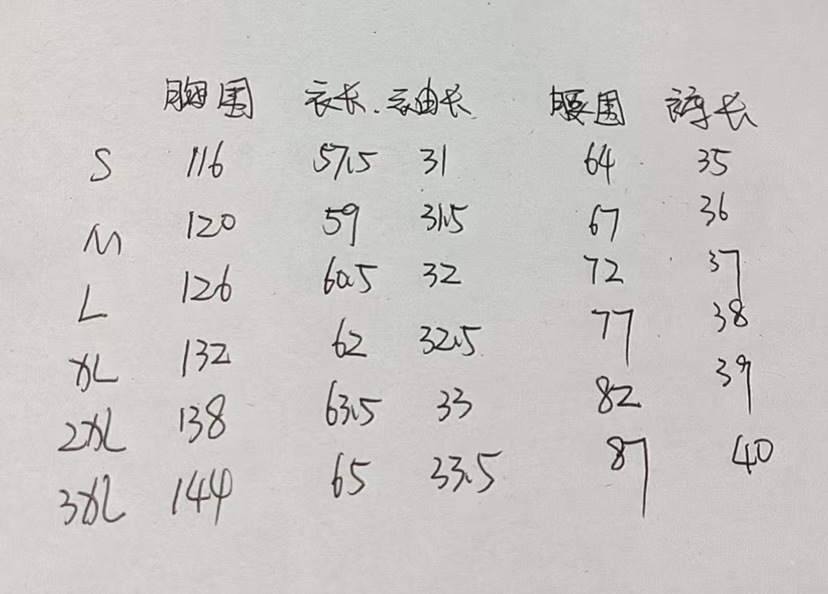 胸围 衣长. 衣袖长 腰围 裤长
S 116 57.5 31 64 35
M 120 59 31.5 67 36
L 126 60.5 32 72 37
XL 132 62 32.5 77 38
2XL 138 63.5 33 82 39
3XL 144 65 33.5 87 40